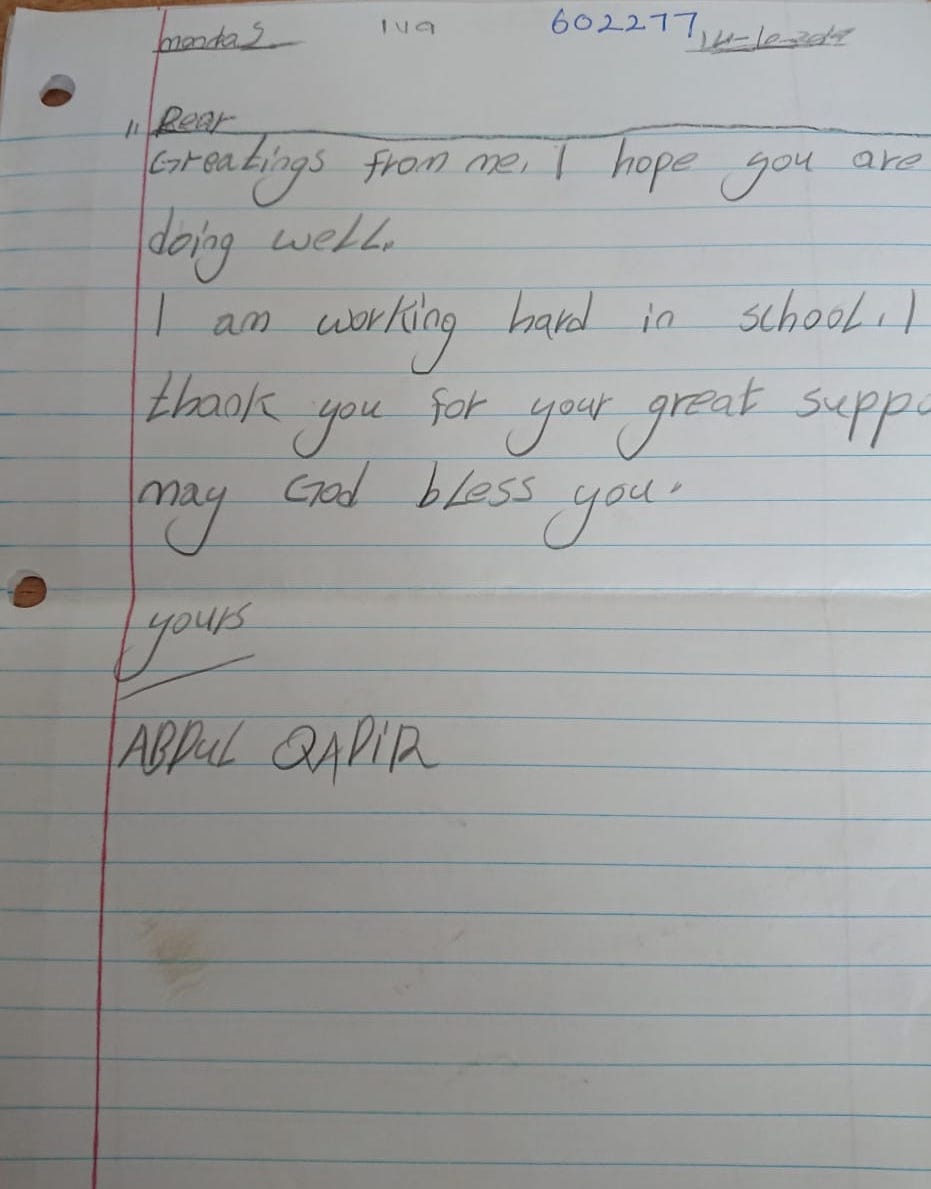 monday 149 602277
" Dear
Greatings from me, I hope you are
doing well.
I am working hard in school. I
thank you for your great suppo
may God bless you.
yours
ABDUL QADIR